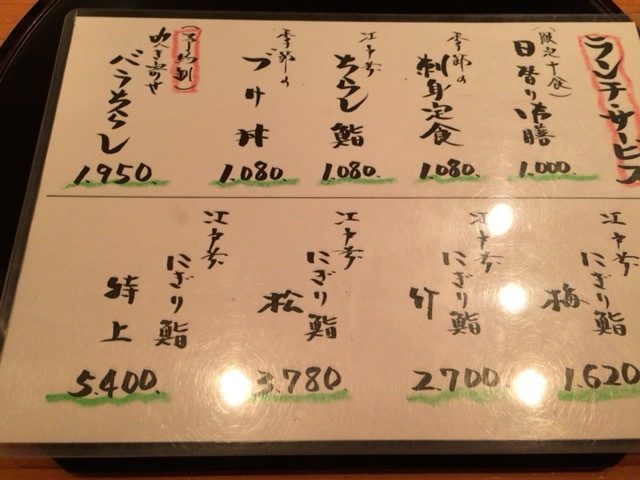 ランチ・サービス
(限定十食)
日替り御膳
1.000.
季節の
刺身定食
1.080.
江戸前
ちらし鮨
1.080.
季節の
づけ丼
1.080.
(予約制)
吹き寄せ
バラちらし
1.950.
江戸前
にぎり鮨
梅
1.620
江戸前
にぎり鮨
竹
2.700.
江戸前
にぎり鮨
松
3.780
江戸前
にぎり鮨
特上
5.400.